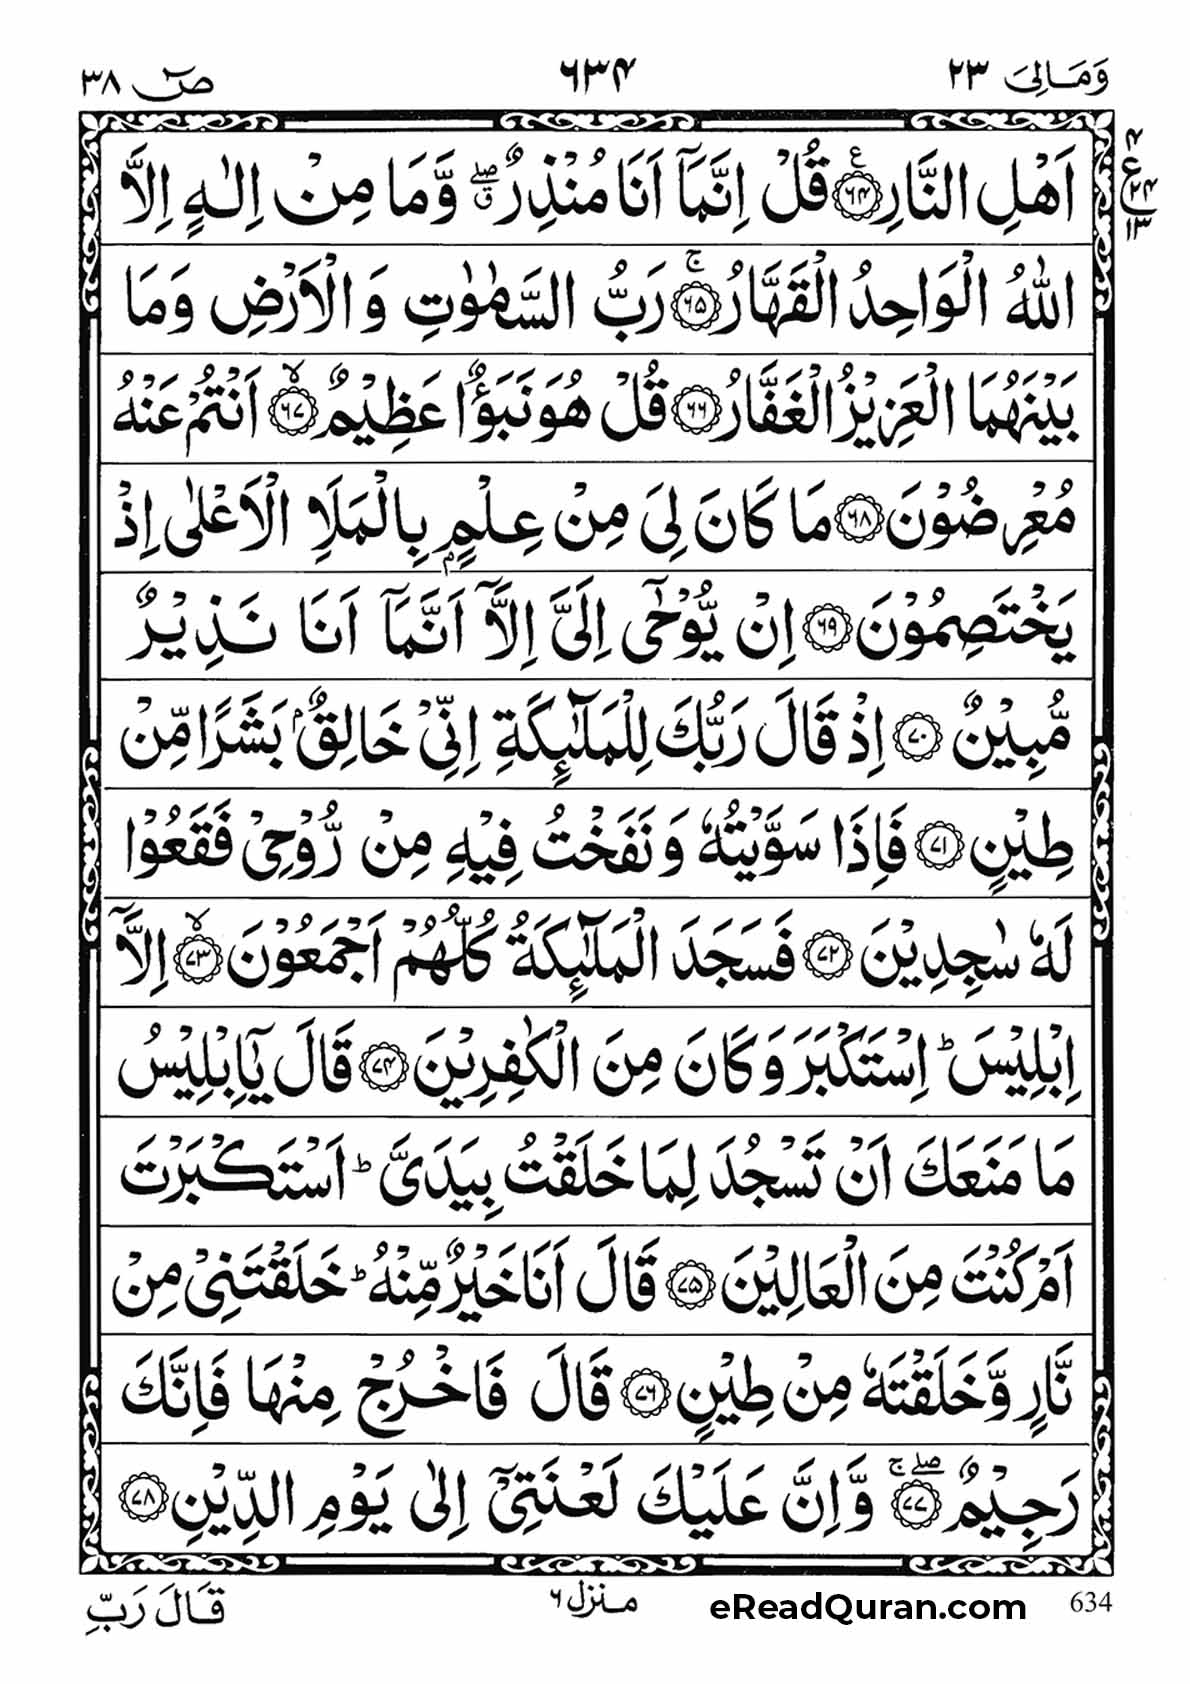 وَمَالِیَ ۲۳
۶۳۴
صٓ ۳۸
اَهْلِ النَّارِ ﴿۶۴﴾ قُلْ اِنَّمَاۤ اَنَا مُنْذِرٌ ۖۗ وَّمَا مِنْ اِلٰهٍ اِلَّا
ع ۲۴ ۱۳
اللّٰهُ الْوَاحِدُ الْقَهَّارُ ۚ﴿۶۵﴾ رَبُّ السَّمٰوٰتِ وَالْاَرْضِ وَمَا
بَيْنَهُمَا الْعَزِيْزُ الْغَفَّارُ ﴿۶۶﴾ قُلْ هُوَ نَبَؤٌا عَظِيْمٌ ۙ﴿۶۷﴾ اَنْتُمْ عَنْهُ
مُعْرِضُوْنَ ﴿۶۸﴾ مَا كَانَ لِیَ مِنْ عِلْمٍۭ بِالْمَلَاِ الْاَعْلٰۤى اِذْ
يَخْتَصِمُوْنَ ﴿۶۹﴾ اِنْ يُّوْحٰۤى اِلَیَّ اِلَّاۤ اَنَّمَاۤ اَنَا نَذِيْرٌ
مُّبِيْنٌ ﴿۷۰﴾ اِذْ قَالَ رَبُّكَ لِلْمَلٰٓئِكَةِ اِنِّیْ خَالِقٌۢ بَشَرًا مِّنْ
طِيْنٍ ﴿۷۱﴾ فَاِذَا سَوَّيْتُهٗ وَنَفَخْتُ فِيْهِ مِنْ رُّوْحِیْ فَقَعُوْا
لَهٗ سٰجِدِيْنَ ﴿۷۲﴾ فَسَجَدَ الْمَلٰٓئِكَةُ كُلُّهُمْ اَجْمَعُوْنَ ۙ﴿۷۳﴾ اِلَّاۤ
اِبْلِيْسَ ؕ اِسْتَكْبَرَ وَكَانَ مِنَ الْكٰفِرِيْنَ ﴿۷۴﴾ قَالَ يٰۤاِبْلِيْسُ
مَا مَنَعَكَ اَنْ تَسْجُدَ لِمَا خَلَقْتُ بِيَدَیَّ ؕ اَسْتَكْبَرْتَ
اَمْ كُنْتَ مِنَ الْعَالِيْنَ ﴿۷۵﴾ قَالَ اَنَا خَيْرٌ مِّنْهُ ؕ خَلَقْتَنِیْ مِنْ
نَّارٍ وَّخَلَقْتَهٗ مِنْ طِيْنٍ ﴿۷۶﴾ قَالَ فَاخْرُجْ مِنْهَا فَاِنَّكَ
رَجِيْمٌ ۚۖ﴿۷۷﴾ وَّاِنَّ عَلَيْكَ لَعْنَتِیْۤ اِلٰى يَوْمِ الدِّيْنِ ﴿۷۸﴾
قَالَ رَبِّ
منزل ۶
eReadQuran.com
634